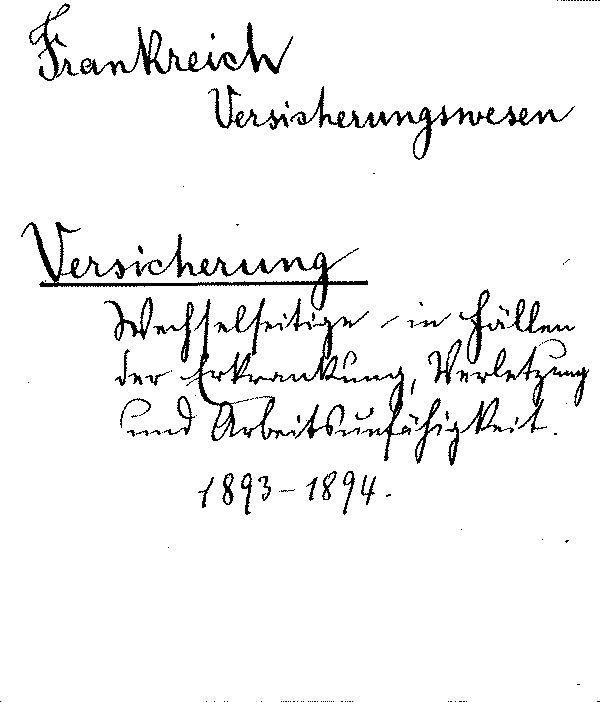 Frankreich
Versicherungswesen
Versicherung
Wechselseitige - in Fällen
der Erkrankung, Verletzung
und Arbeitsunfähigkeit.
1893-1894.